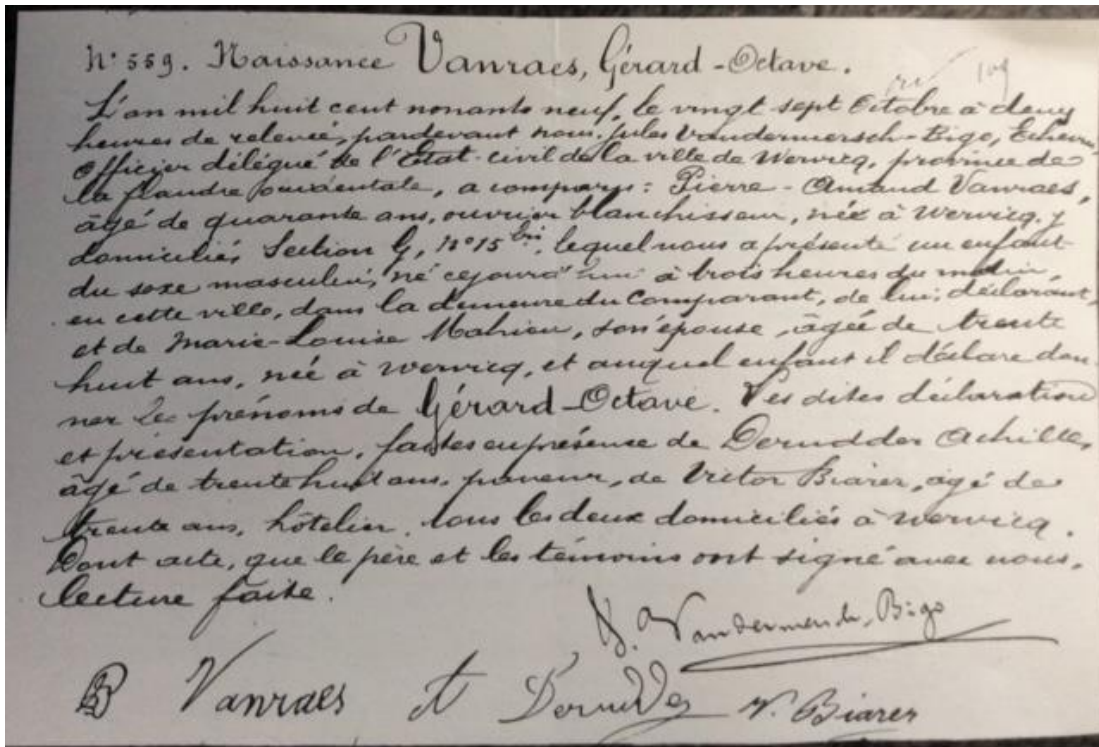 N° 559. Naissance Vanraes, Gérard-Octave.
109
L'an mil huit cent nonante neuf, le vingt sept Octobre à deux
heures de relevée, pardevant nous, Jules Vandermersch-Bigo, Echevin,
Officier délégué de l'Etat-civil de la ville de Wervicq, province de
la flandre occidentale, a comparu: Pierre-Amand Vanraes,
âgé de quarante ans, ouvrier blanchisseur, née à Wervicq, y
domicilié, Section G, n° 15 bis, lequel nous a présenté un enfant
du sexe masculin, né cejourd'hui à trois heures du matin,
en cette ville, dans la demeure du Comparant, de lui, déclarant,
et de Marie-Louise Mahieu, son épouse, âgée de trente
huit ans, née à Wervicq, et auquel enfant il déclare don-
ner les prénoms de Gérard-Octave. Les dites déclaration
et présentation, faites en présence de Derudder Achille,
âgé de trente huit ans, paveur, de Victor Biarer, âgé de
trente ans, hôtelier, tous les deux domiciliés à Wervicq.
Dont acte, que le père et les témoins ont signé avec nous,
lecture faite.
J. Vandermersch-Bigo
P Vanraes A Derudder V. Biarer